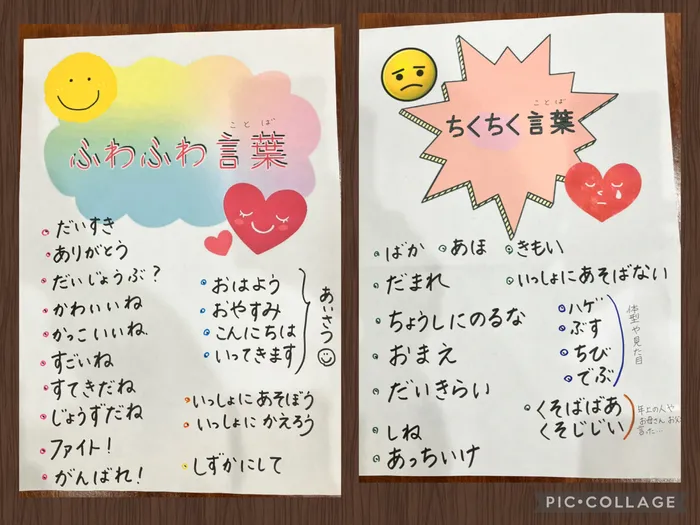 ことば
ふわふわ言葉
だいすき
ありがとう
だいじょうぶ？
かわいいね
かっこいいね
すごいね
すてきだね
じょうずだね
ファイト！
がんばれ！
おはよう
おやすみ
こんにちは
いってきます
あいさつ
いっしょにあそぼう
いっしょにかえろう
しずかにして
ことば
ちくちく言葉
ばか
あほ
きもい
だまれ
いっしょにあそばない
ちょうしにのるな
おまえ
だいきらい
しね
あっちいけ
ハゲ
ぶす
ちび
でぶ
体型や見た目
くそばばあ
くそじじい
年上の人や
お母さん お父
言った…
PIC•COLLAGE